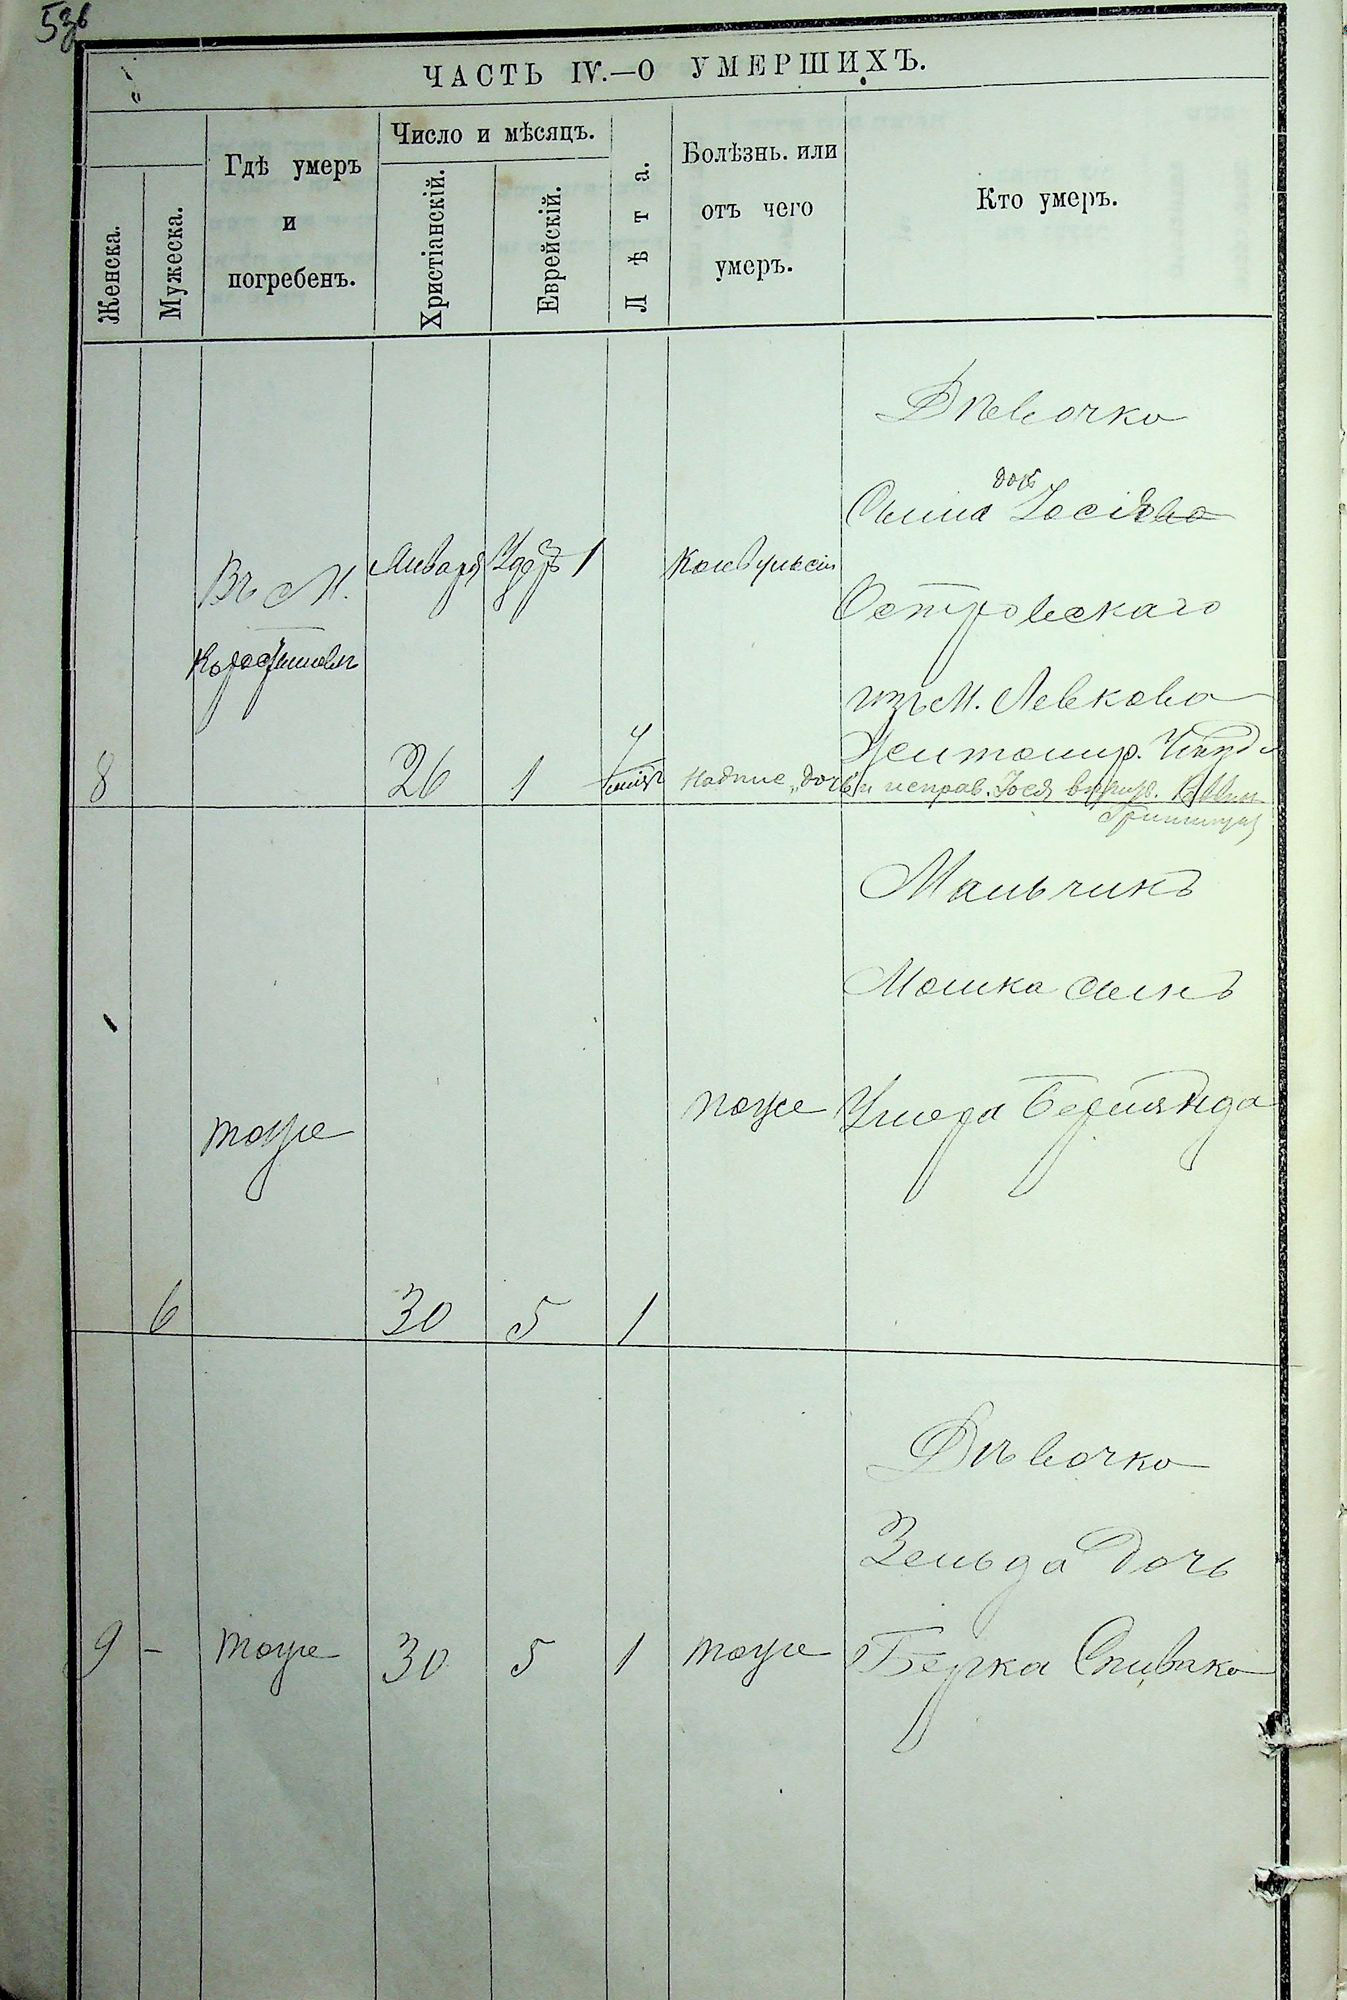 ЧАСТЬ IV.—О УМЕРШИХЪ.
Женска.
Мужеска.
Гдѣ умеръ
и
погребенъ.
Число и мѣсяцъ.
Христіанскій.
Еврейскій.
Лѣта.
Болѣзнь. или
отъ чего
умеръ.
Кто умеръ.
Дѣвочка
дочь
Іосія
Островскаго
изъ М. Левкова
Житомир.
Въ М.
Коростишевѣ
Января
1
Конвульсіи
8
26
1
7
Надпис. „дочь" и исправ. Іося вѣрно.
Мальчикъ
Мошка сынъ
Ушера Берлянда
тоже
тоже
6
30
5
1
Дѣвочка
Зельда дочь
Берка Спивака
9
–
тоже
30
5
1
тоже